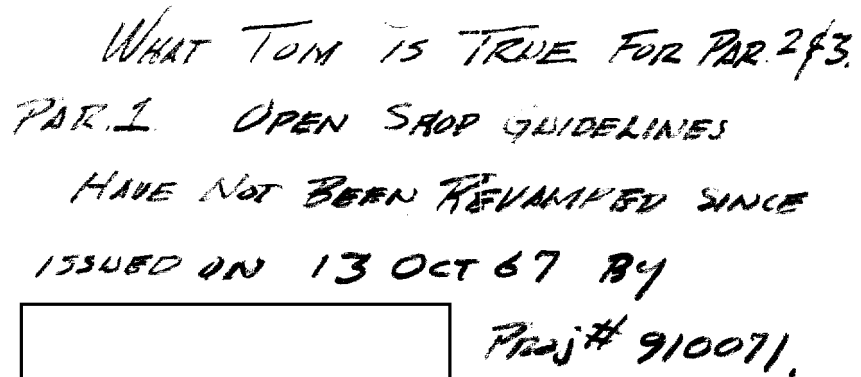 WHAT TOM IS TRUE FOR PAR. 2 & 3.
PAR. 1. OPEN SHOP GUIDELINES
HAVE NOT BEEN REVAMPED SINCE
ISSUED ON 13 OCT 67 BY
Proj # 910071.